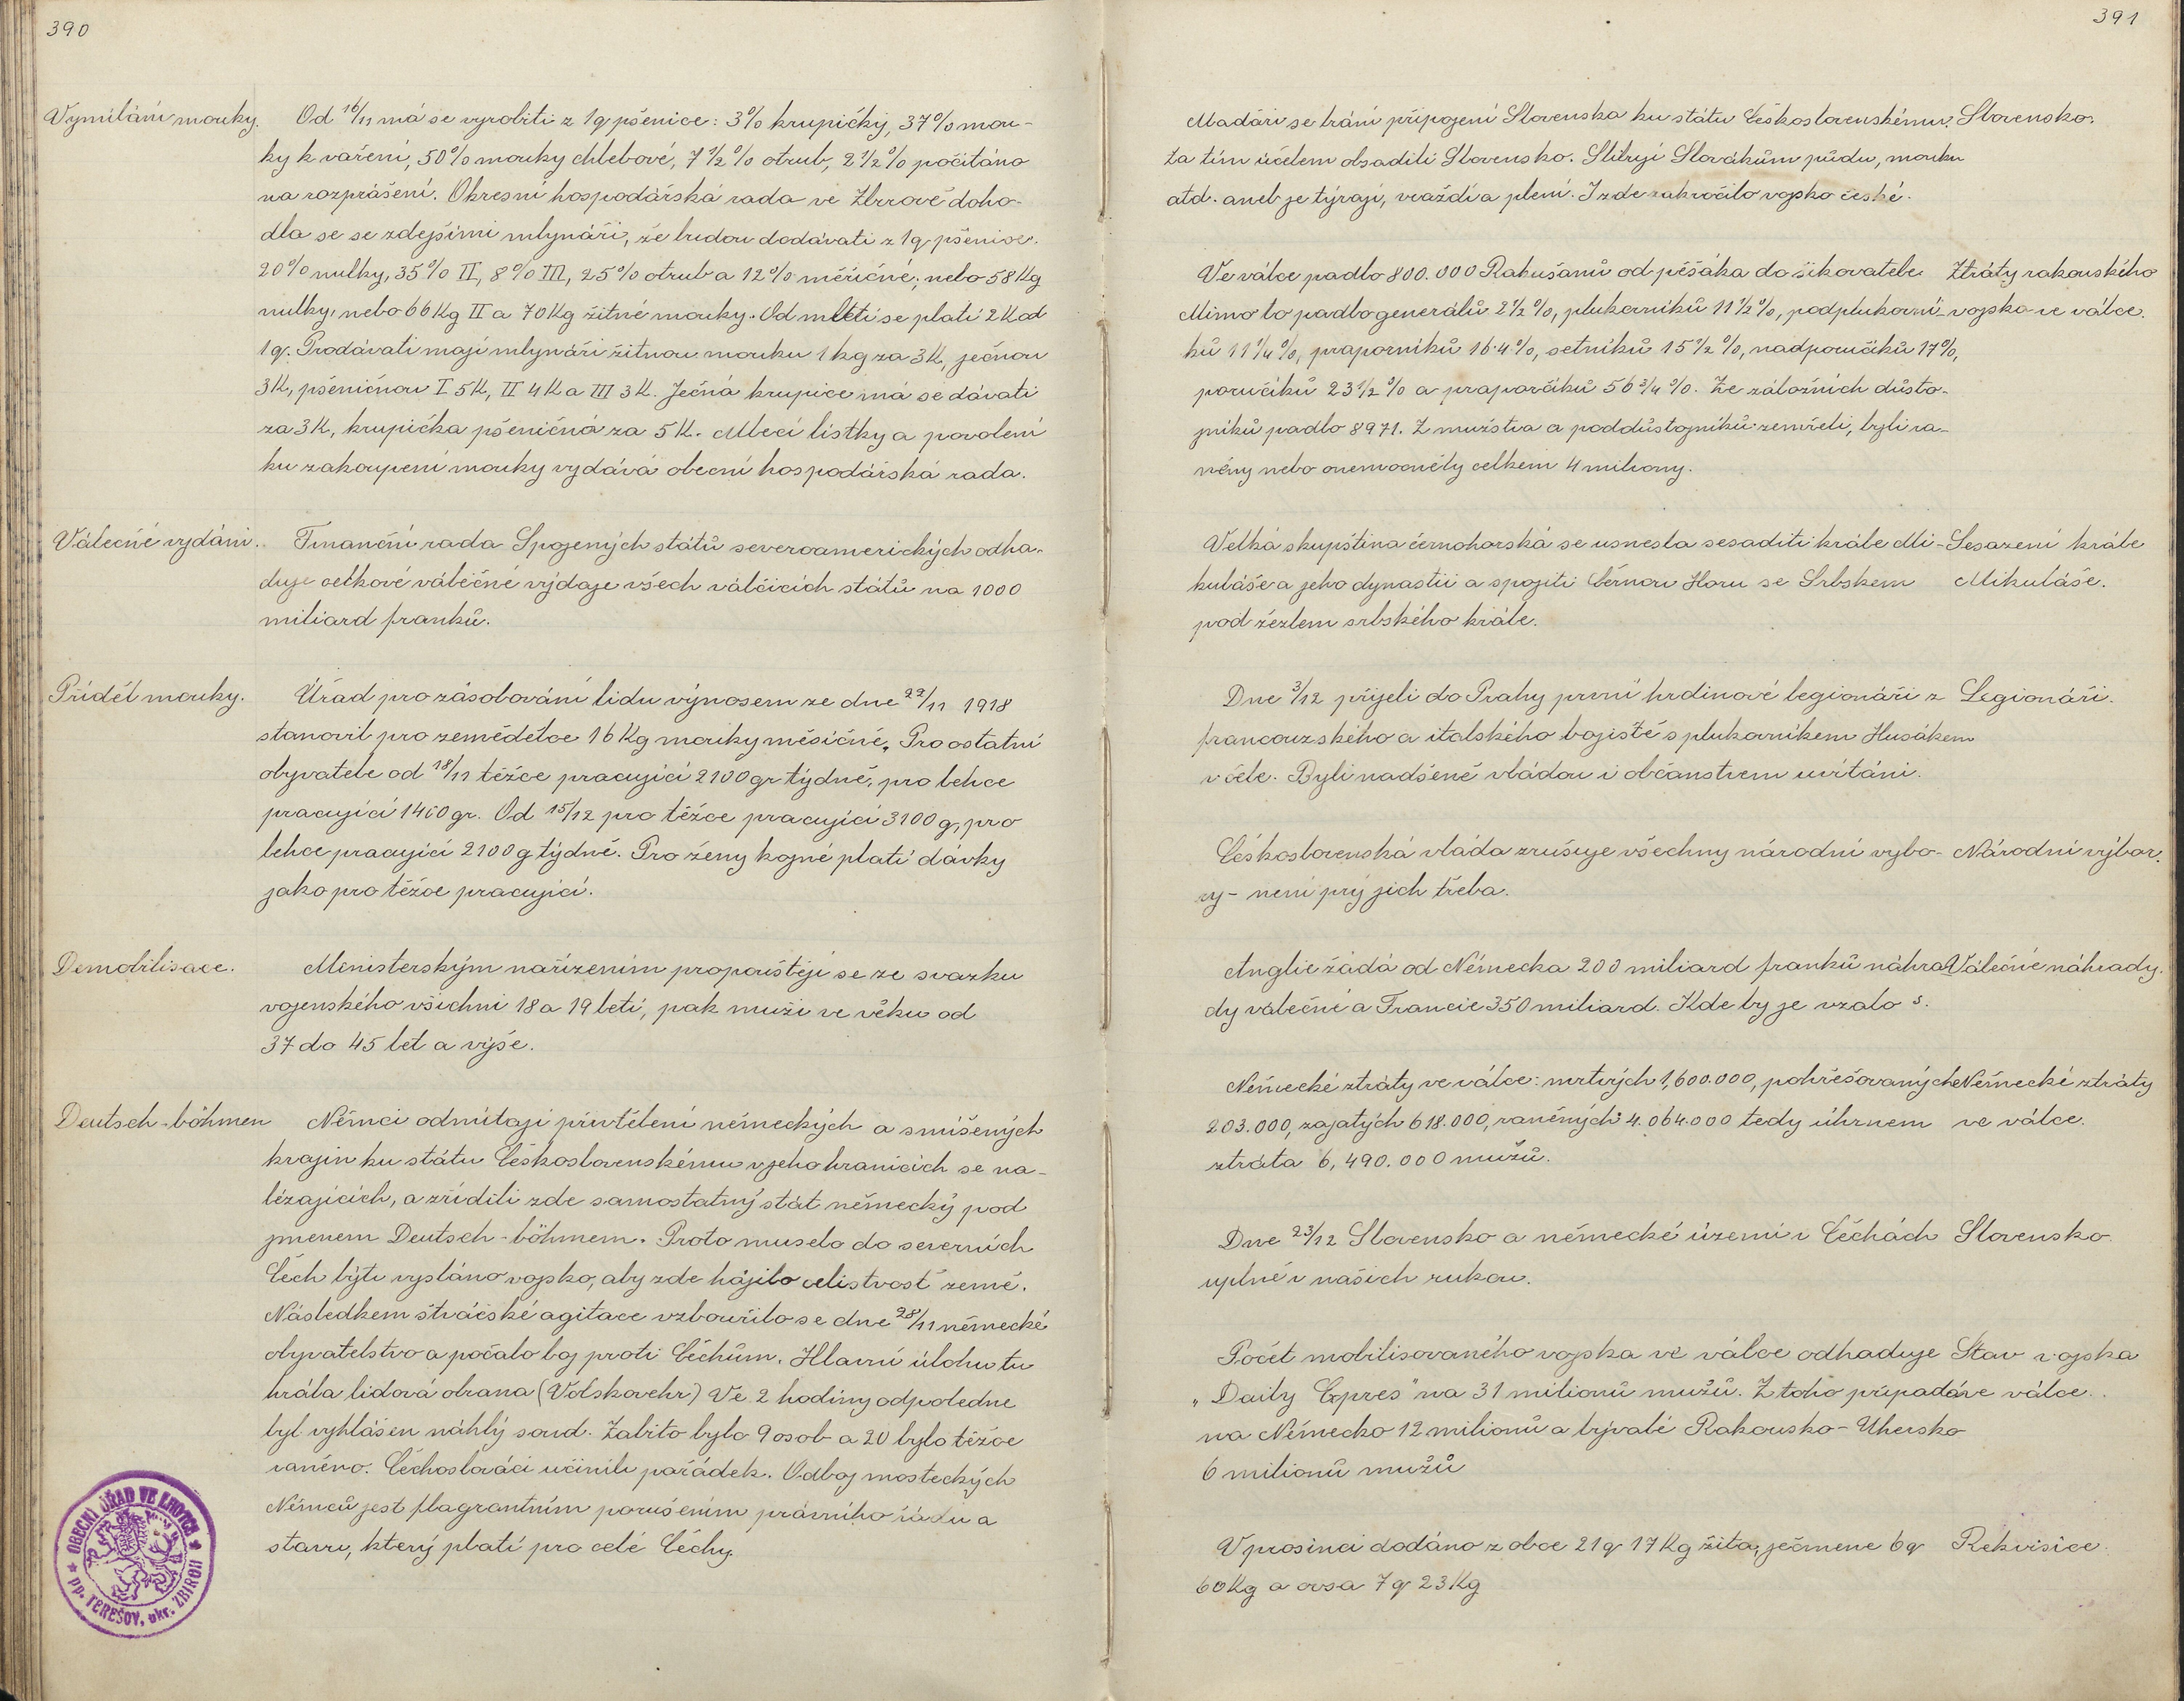 390
Vymílání mouky. Od 16/11 má se vyrobiti z 1q pšenice: 3% krupičky, 37% mou-
ky k vaření, 50% mouky chlebové, 7 1/2 % otrub, 2 1/2 % počítáno
na rozprášení. Okresní hospodářská rada ve Zbirově doho-
dla se se zdejšími mlynáři, že budou dodávati z 1q pšenice.
20% nulky, 35% II, 8% III, 25% otrub a 12% měřičné; nebo 58 Kg
nulky, nebo 66 Kg II a 70 Kg žitné mouky. Od mletí se platí 2 K od
1q. Prodávati mají mlynáři žitnou mouku 1 kg za 3K, ječnou
3K, pšeničnou I 5K, II 4K a III 3K. Ječná krupice má se dávati
za 3K, krupička pšeničná za 5K. Mlecí lístky a povolení
ku zakoupení mouky vydává obecní hospodářská rada.
Válečné vydání. Finanční rada Spojených států severoamerických odha-
duje celkové válečné výdaje všech válčících států na 1000
miliard franků.
Příděl mouky. Úřad pro zásobování lidu výnosem ze dne 22/11 1918
stanovil pro zemědělce 16 Kg mouky měsíčně. Pro ostatní
obyvatele od 18/11 těžce pracující 2100 gr týdně, pro lehce
pracující 1400 gr. Od 15/12 pro těžce pracující 3100 g, pro
lehce pracující 2100 g týdně. Pro ženy kojné platí dávky
jako pro těžce pracující.
Demobilisace. Ministerským nařízením propouštějí se ze svazku
vojenského všichni 18 a 19 letí, pak muži ve věku od
37 do 45 let a výše.
Deutsch-böhmen Němci odmítají přivtělení německých a smíšených
krajin ku státu Československému v jeho hranicích se na-
lézajících, a zřídili zde samostatný stát německý pod
jmenem Deutsch-böhmem. Proto muselo do severních
Čech býti vysláno vojsko, aby zde hájilo celistvost země.
Následkem štváčské agitace vzbouřilo se dne 28/11 německé
obyvatelstvo a počalo boj proti Čechům. Hlavní úlohu tu
hrála lidová obrana (Volskovehr) Ve 2 hodiny odpoledne
byl vyhlášen náhlý soud. Zabito bylo 9 osob a 20 bylo těžce
raněno. Čechoslováci učinili pořádek. Odboj mosteckých
Němců jest flagrantním porušením právního řádu a
stavu, který platí pro celé Čechy.
OBECNÍ ÚŘAD VE LHOTCE
pp. TEREŠOV, okr. ZBIROH
391
Maďaři se brání připojení Slovenska ku státu Československému. Slovensko.
Za tím účelem obsadili Slovensko. Slibují Slovákům půdu, mouku
atd. aneb je týrají, vraždí a plení. I zde zakročilo vojsko české.
Ve válce padlo 800.000 Rakušanů od pěšáka do šikovatele Ztráty rakouského
Mimo to padlo generálů 2 1/2 %, plukovníků 11 1/2 %, podplukovní- vojska ve válce.
ků 11 1/4 %, praporníků 16·4%, setníků 15 1/2 %, nadporučíků 17%,
poručíků 23 1/2 % a praporčíků 56 3/4 %. Ze záložních důsto-
jníků padlo 8971. Z mužstva a poddůstojníků zemřeli, byli ra-
něny nebo onemocněly celkem 4 miliony.
Velká skupština černohorská se usnesla sesaditi krále Mi- Sesazení krále
kuláše a jeho dynastii a spojiti Černou Horu se Srbskem Mikuláše.
pod žezlem srbského krále.
Dne 3/12 přijeli do Prahy první hrdinové legionáři z Legionáři.
francouzského a italského bojiště s plukovníkem Husákem
v čele. Byli nadšeně vládou i občanstvem uvítáni.
Československá vláda zrušuje všechny národní vybo- Národní výbor.
ry - není prý jich třeba.
Anglie žádá od Německa 200 miliard franků náhra- Válečné náhrady.
dy válečné a Francie 350 miliard. Kde by je vzalo
Německé ztráty ve válce: mrtvých 1,600.000, pohřešovaných Německé ztráty
203.000, zajatých 618.000, raněných 4.064.000 tedy úhrnem ve válce.
ztráta 6,490.000 mužů.
Dne 23/12 Slovensko a německé území v Čechách Slovensko
uplně v našich rukou.
Počet mobilisovaného vojska ve válce odhaduje Stav vojska
„Daily Expres" na 31 milionů mužů. Z toho připadá ve válce.
na Německo 12 milionů a bývalé Rakousko-Uhersko
6 milionů mužů
V prosinci dodáno z obce 21q 17 Kg žita, ječmene 6q Rekvisice.
60 Kg a ovsa 7q 23 Kg